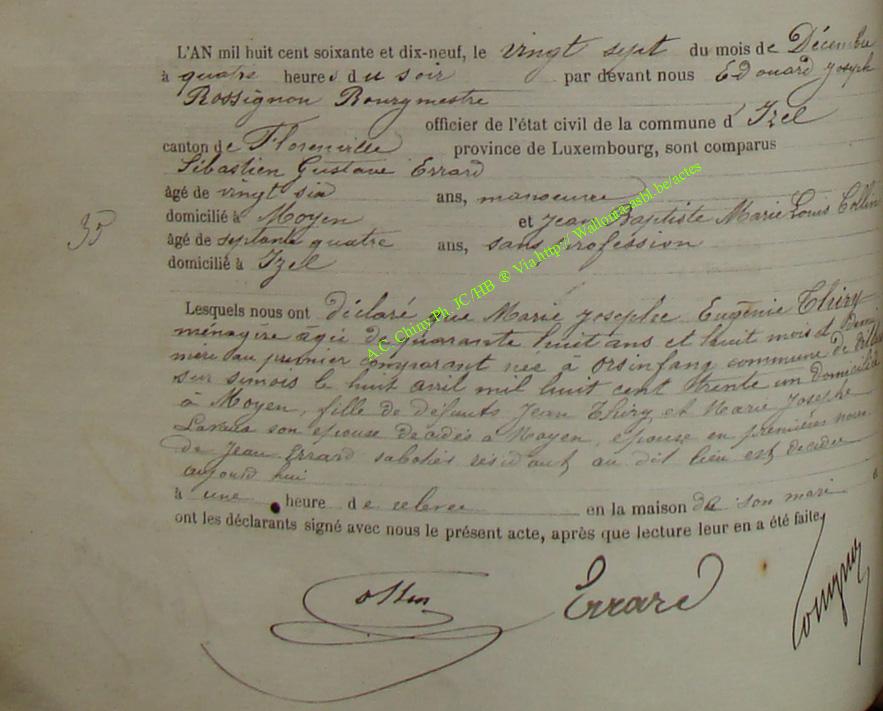 L'AN mil huit cent soixante et dix-neuf, le vingt sept du mois de Décembre
à quatre heures du soir par devant nous Edouard Joseph
Rossignon Bourgmestre
officier de l'état civil de la commune d'Izel
canton de Florenville province de Luxembourg, sont comparus
Sébastien Gustave Errard
âgé de vingt six ans, manoeuvre
domicilié à Moyen et Jean Baptiste Marie Louis Collin
35
âgé de septante quatre ans, sans profession
domicilié à Izel
Lesquels nous ont déclaré que Marie Josephe Eugénie Thiry
ménagère agée de quarante huit ans et huit mois et demi
mère au premier comparant née à Orsinfang commune de
sur semois le huit avril mil huit cent trente un domiciliée
à Moyen, fille de défunts Jean Thiry et Marie Josephe
son epouse décédés à Moyen, épouse en premières noces
de Jean Errard sabotier résidant au dit lieu est décédée
aujourd'hui
à une heure de relevée en la maison de son mari
ont les déclarants signé avec nous le présent acte, après que lecture leur en a été faite
Collin Errard
A.C. Chiny Ph. JC/HB ® Via http// Wallonia-asbl.be/actes